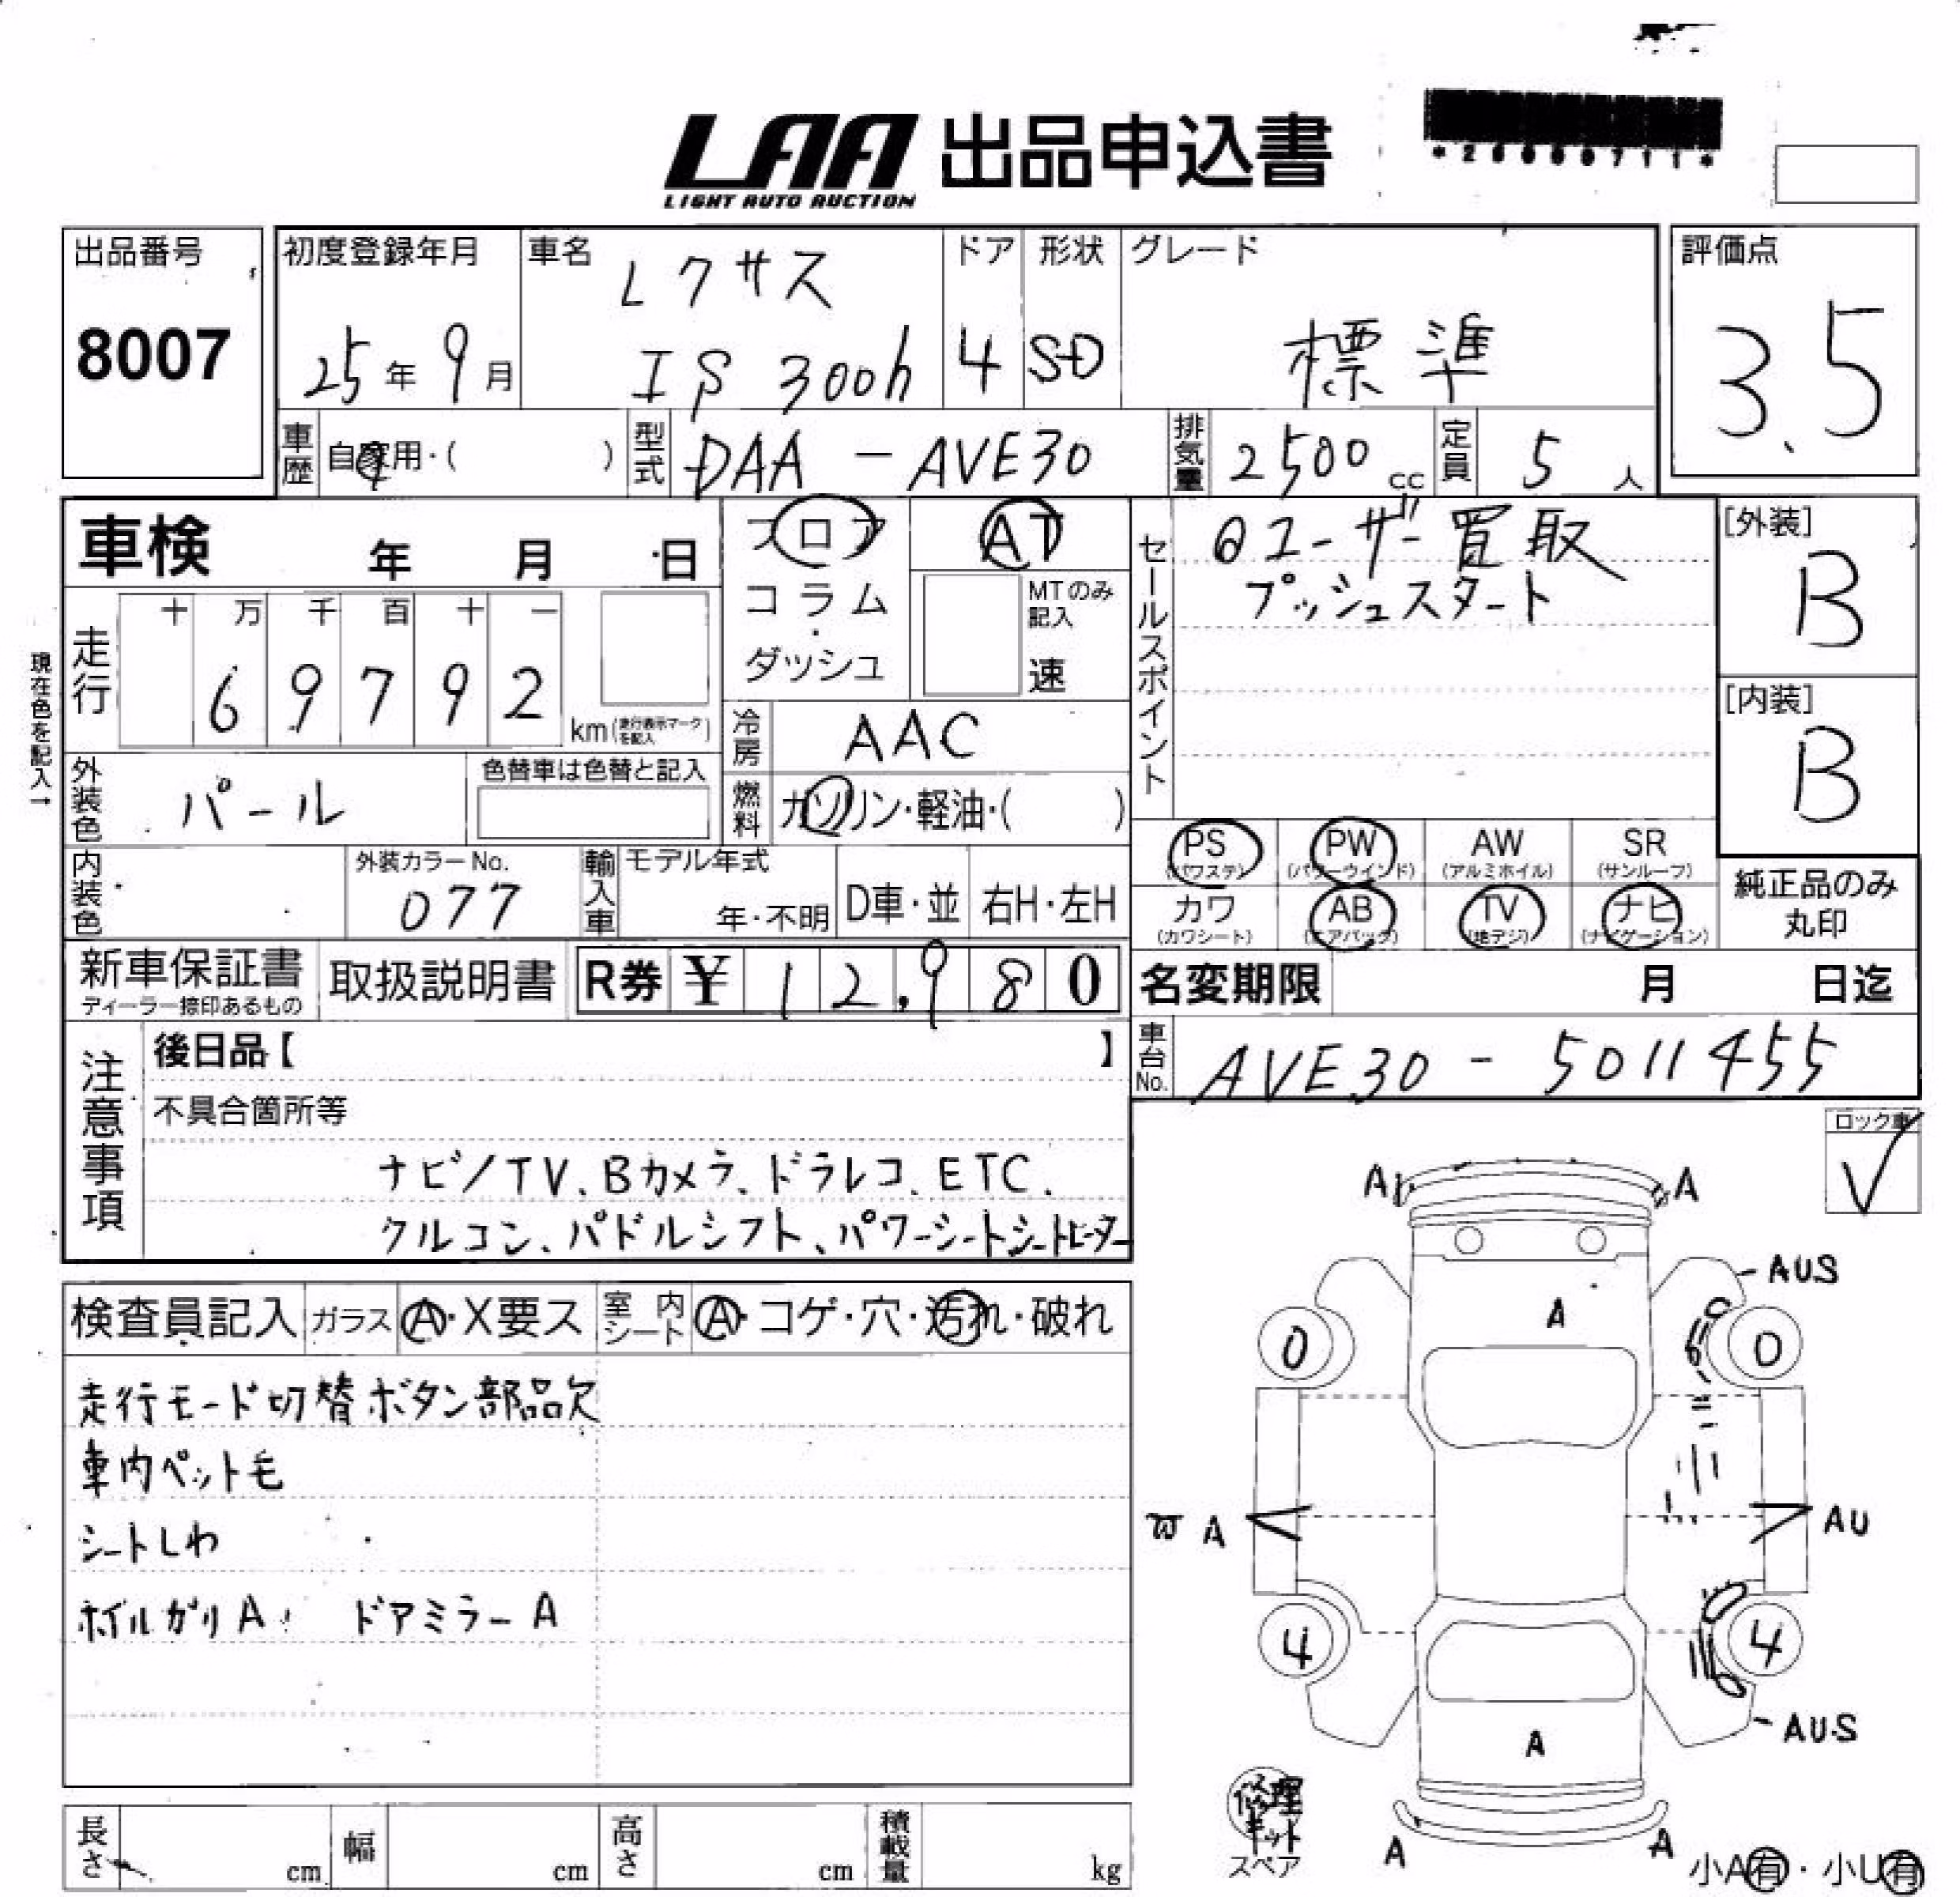 LAA 出品申込書
LIGHT AUTO AUCTION
出品番号
8007
初度登録年月
25年9月
車名
レクサス
IS 300h
ドア
4
形状
SD
グレード
標準
評価点
3.5
車歴 自家用・( )
型式 DAA-AVE30
排気量 2500cc
定員 5人
車検 年 月 日
フロア
コラム・
ダッシュ
AT
MTのみ記入
速
セールスポイント
ユーザー買取
プッシュスタート
[外装]
B
[内装]
B
現在色を記入→
走行
十 万 千 百 十 一
6 9 7 9 2
km(走行表示マークを記入)
冷房 AAC
燃料 ガソリン・軽油・( )
外装色 パール
色替車は色替と記入
内装色
外装カラーNo.
077
輸入車
モデル年式
年・不明
D車・並
右H・左H
PS (パワステ)
PW (パワーウインド)
AW (アルミホイル)
SR (サンルーフ)
カワ (カワシート)
AB (エアバック)
TV (地デジ)
ナビ (ナビゲーション)
純正品のみ
丸印
新車保証書
ディーラー捺印あるもの
取扱説明書
R券 ¥ 12,980
名変期限 月 日迄
車台No. AVE30-5011455
注意事項
後日品【 】
不具合箇所等
ナビ/TV、Bカメラ、ドラレコ、ETC、
クルコン、パドルシフト、パワーシートシートヒーター
ロック車
検査員記入
ガラス A・X要ス
室内シート A・コゲ・穴・汚れ・破れ
走行モード切替ボタン部品欠
車内ペット毛
シートしわ
ホイルガリA ドアミラーA
A A
AUS
A
0 0
A AU
4 4
AUS
A
A A
修理キット
スペア
小A有・小U有
長さ cm
幅 cm
高さ cm
積載量 kg